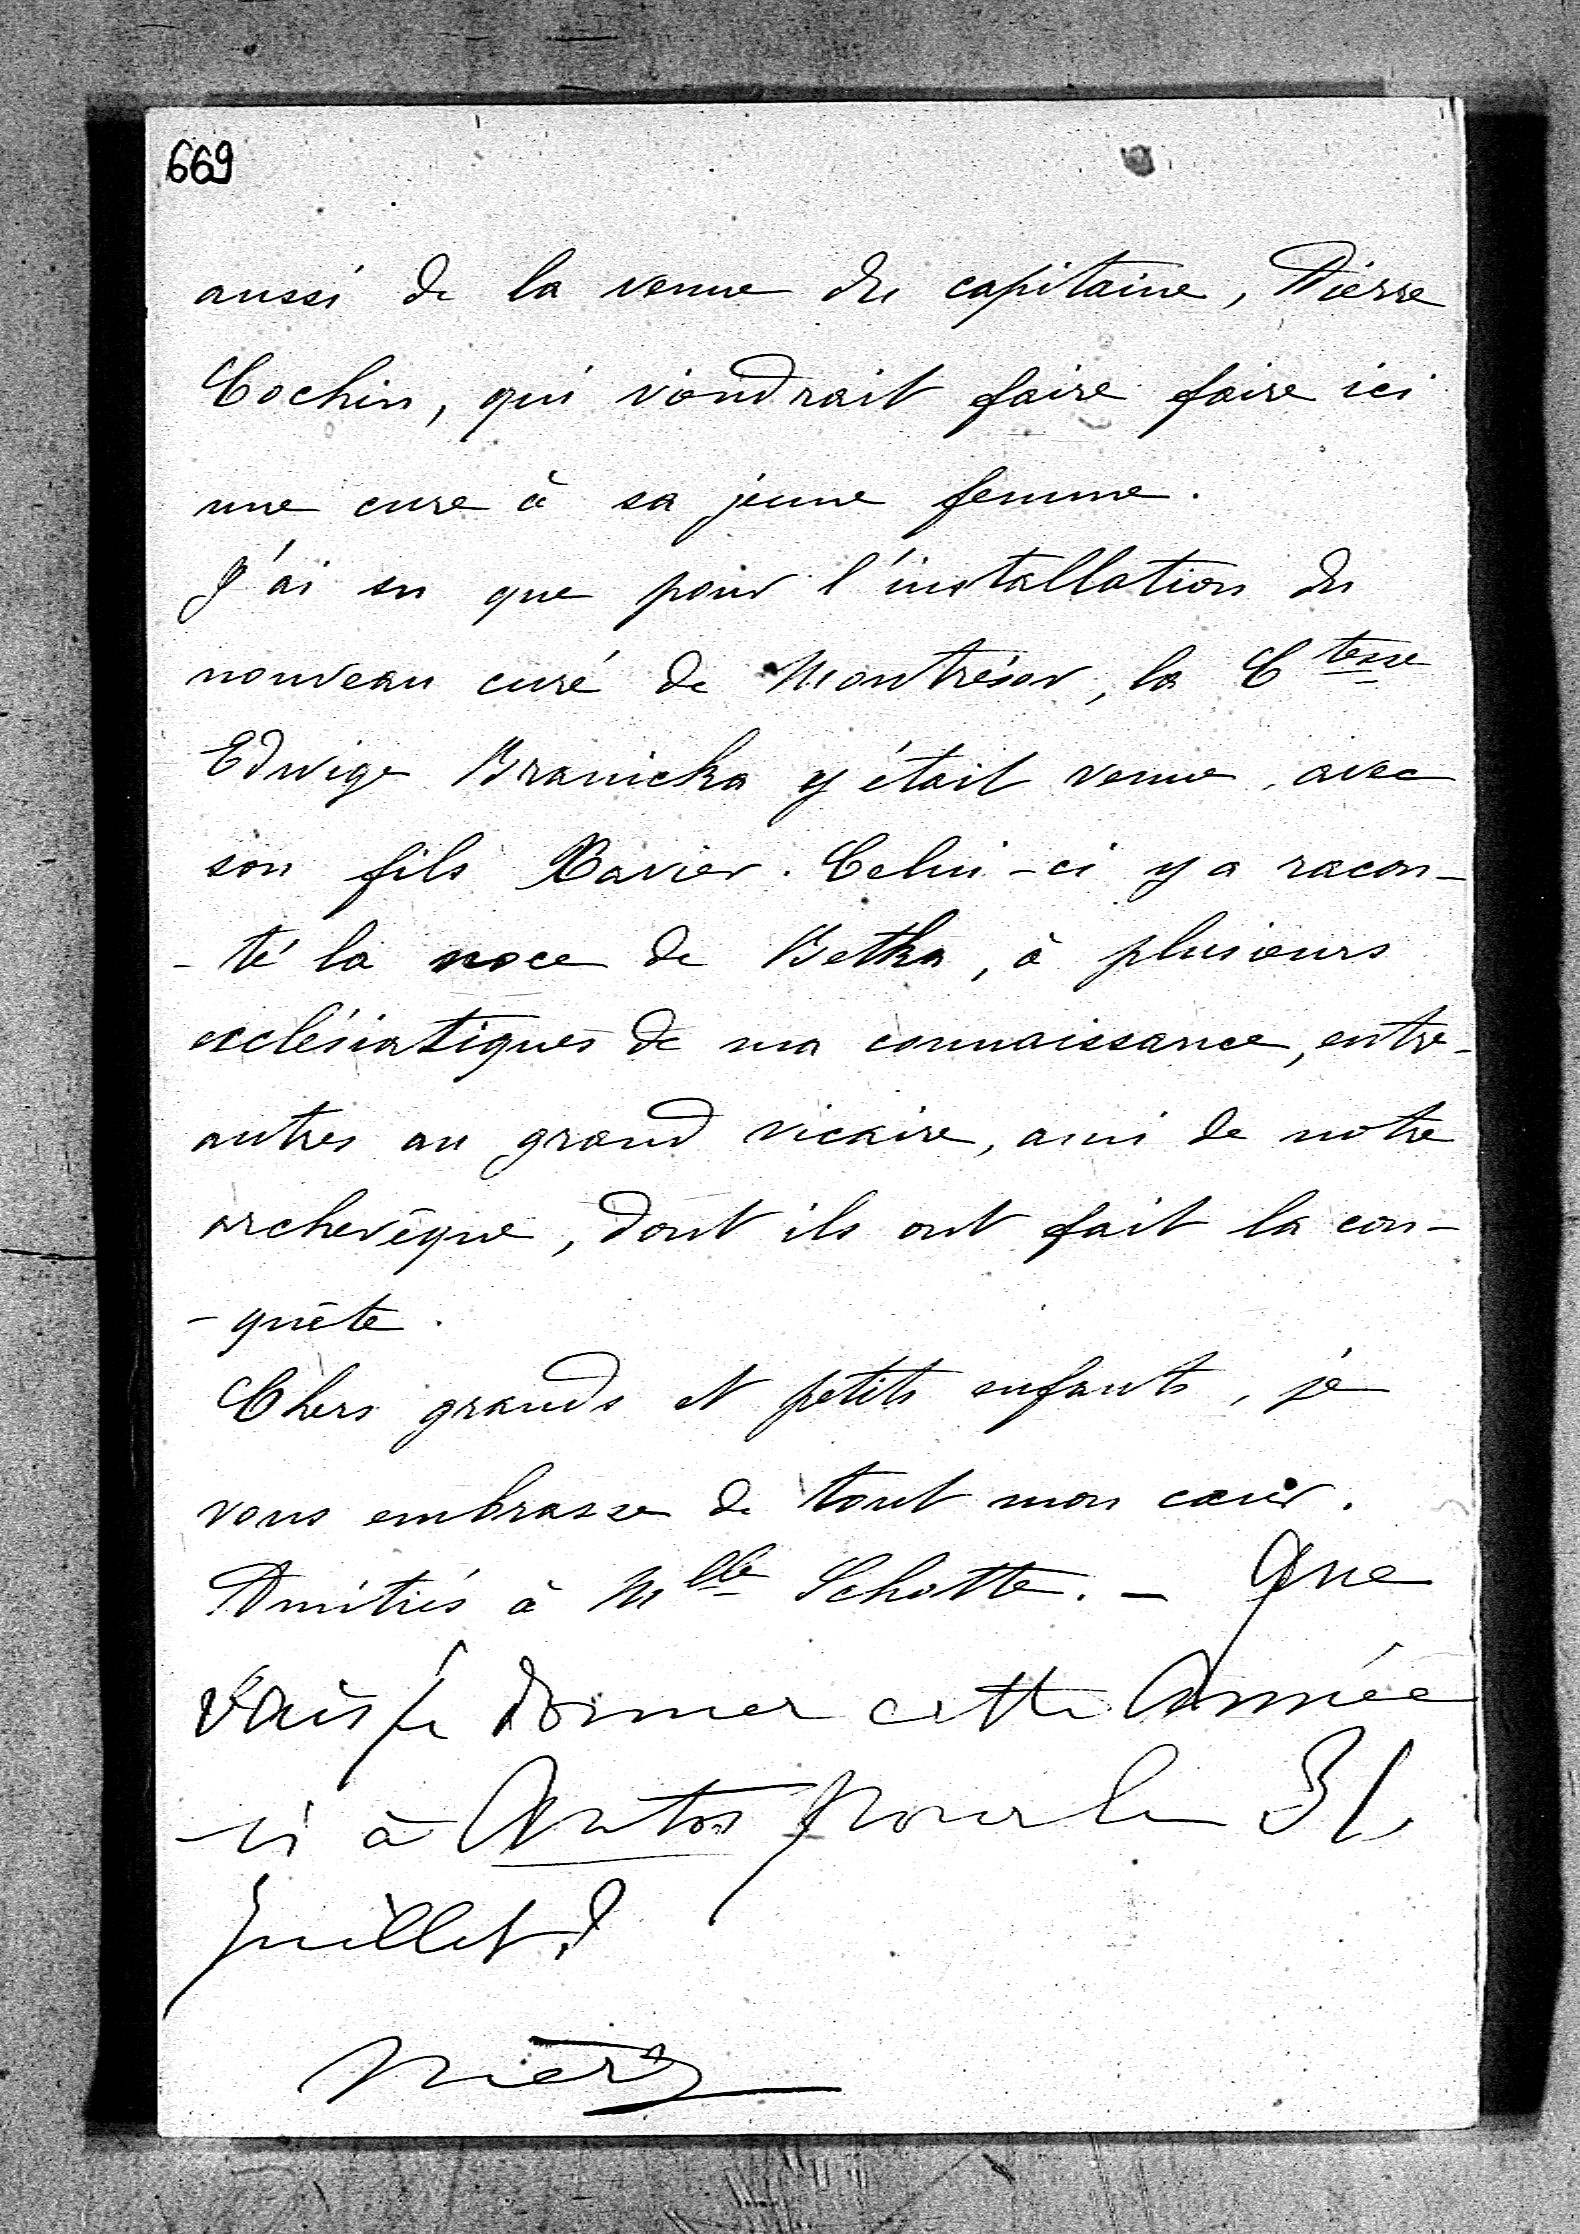 669
aussi de la venue du capitaine, Pierre
Cochin, qui viendrait faire faire ici
une cure à sa jeune femme.
J'ai su que pour l'installation du
nouveau curé de Montrésor, la Ctesse
Edwige Branicka y était venue, avec
son fils Xavier. Celui-ci y a racon-
-té la noce de Betka, à plusieurs
ecclésiatiques de ma connaissance, entre-
autres au grand vicaire, ami de notre
archevêque, dont ils ont fait la con-
-quête.
Chers grands et petits enfants, je
vous embrasse de tout mon cœur.
Amitiés à Mlle Schotte. – Que
vais je donner cette Année
-ci à Antos pour le 31
Juillet?